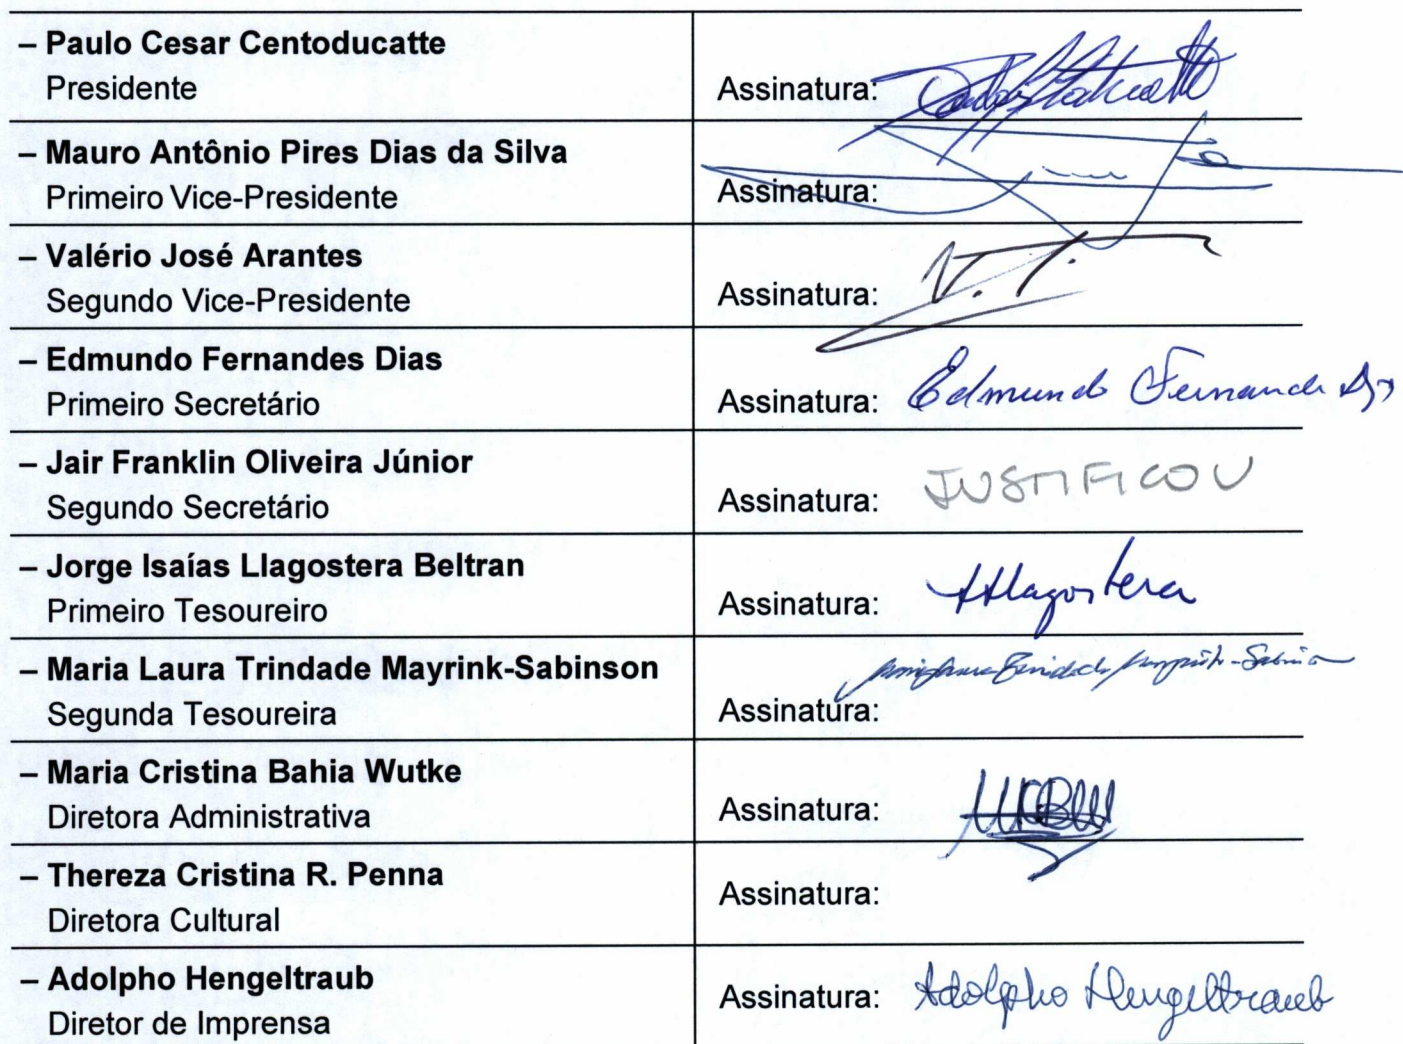 – Paulo Cesar Centoducatte
Presidente
Assinatura:
– Mauro Antônio Pires Dias da Silva
Primeiro Vice-Presidente
Assinatura:
– Valério José Arantes
Segundo Vice-Presidente
Assinatura: V. J.
– Edmundo Fernandes Dias
Primeiro Secretário
Assinatura: Edmundo Fernandes Dias
– Jair Franklin Oliveira Júnior
Segundo Secretário
Assinatura: JUSTIFICOU
– Jorge Isaías Llagostera Beltran
Primeiro Tesoureiro
Assinatura: Llagostera
– Maria Laura Trindade Mayrink-Sabinson
Segunda Tesoureira
Assinatura: Maria Laura Trindade Mayrink-Sabinson
– Maria Cristina Bahia Wutke
Diretora Administrativa
Assinatura: MCBW
– Thereza Cristina R. Penna
Diretora Cultural
Assinatura:
– Adolpho Hengeltraub
Diretor de Imprensa
Assinatura: Adolpho Hengeltraub